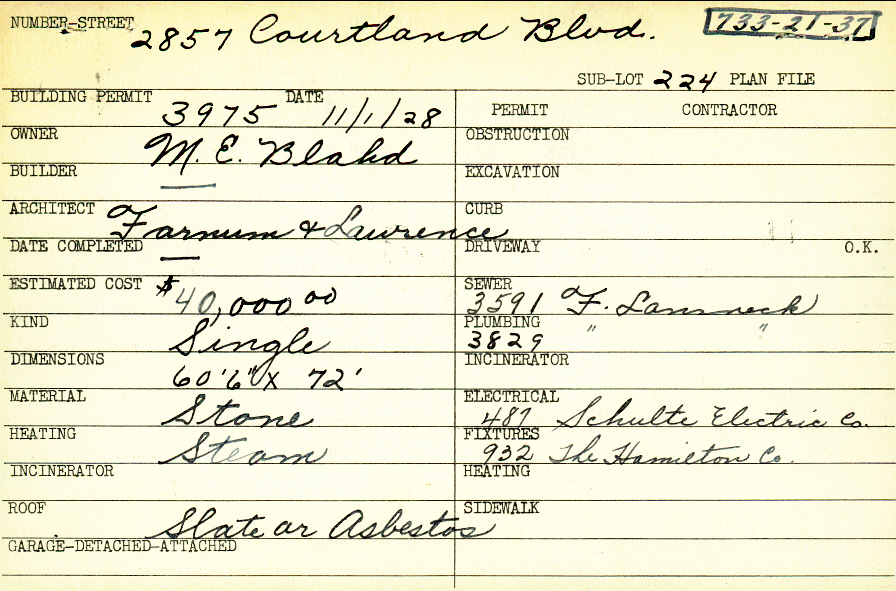 NUMBER-STREET 2857 Courtland Blvd. 733-21-37
SUB-LOT 224 PLAN FILE
BUILDING PERMIT 3975 DATE 11/1/28
PERMIT CONTRACTOR
OWNER M. E. Blahd
OBSTRUCTION
BUILDER —
EXCAVATION
ARCHITECT Farnum & Lawrence
CURB
DATE COMPLETED —
DRIVEWAY O.K.
ESTIMATED COST $40,000 00
SEWER 3591 F.
KIND Single
PLUMBING 3829 " "
DIMENSIONS 60'6" X 72'
INCINERATOR
MATERIAL Stone
ELECTRICAL 487 Schulte Electric Co.
HEATING Steam
FIXTURES 932 The Hamilton Co.
INCINERATOR
HEATING
ROOF Slate or Asbestos
SIDEWALK
GARAGE-DETACHED-ATTACHED